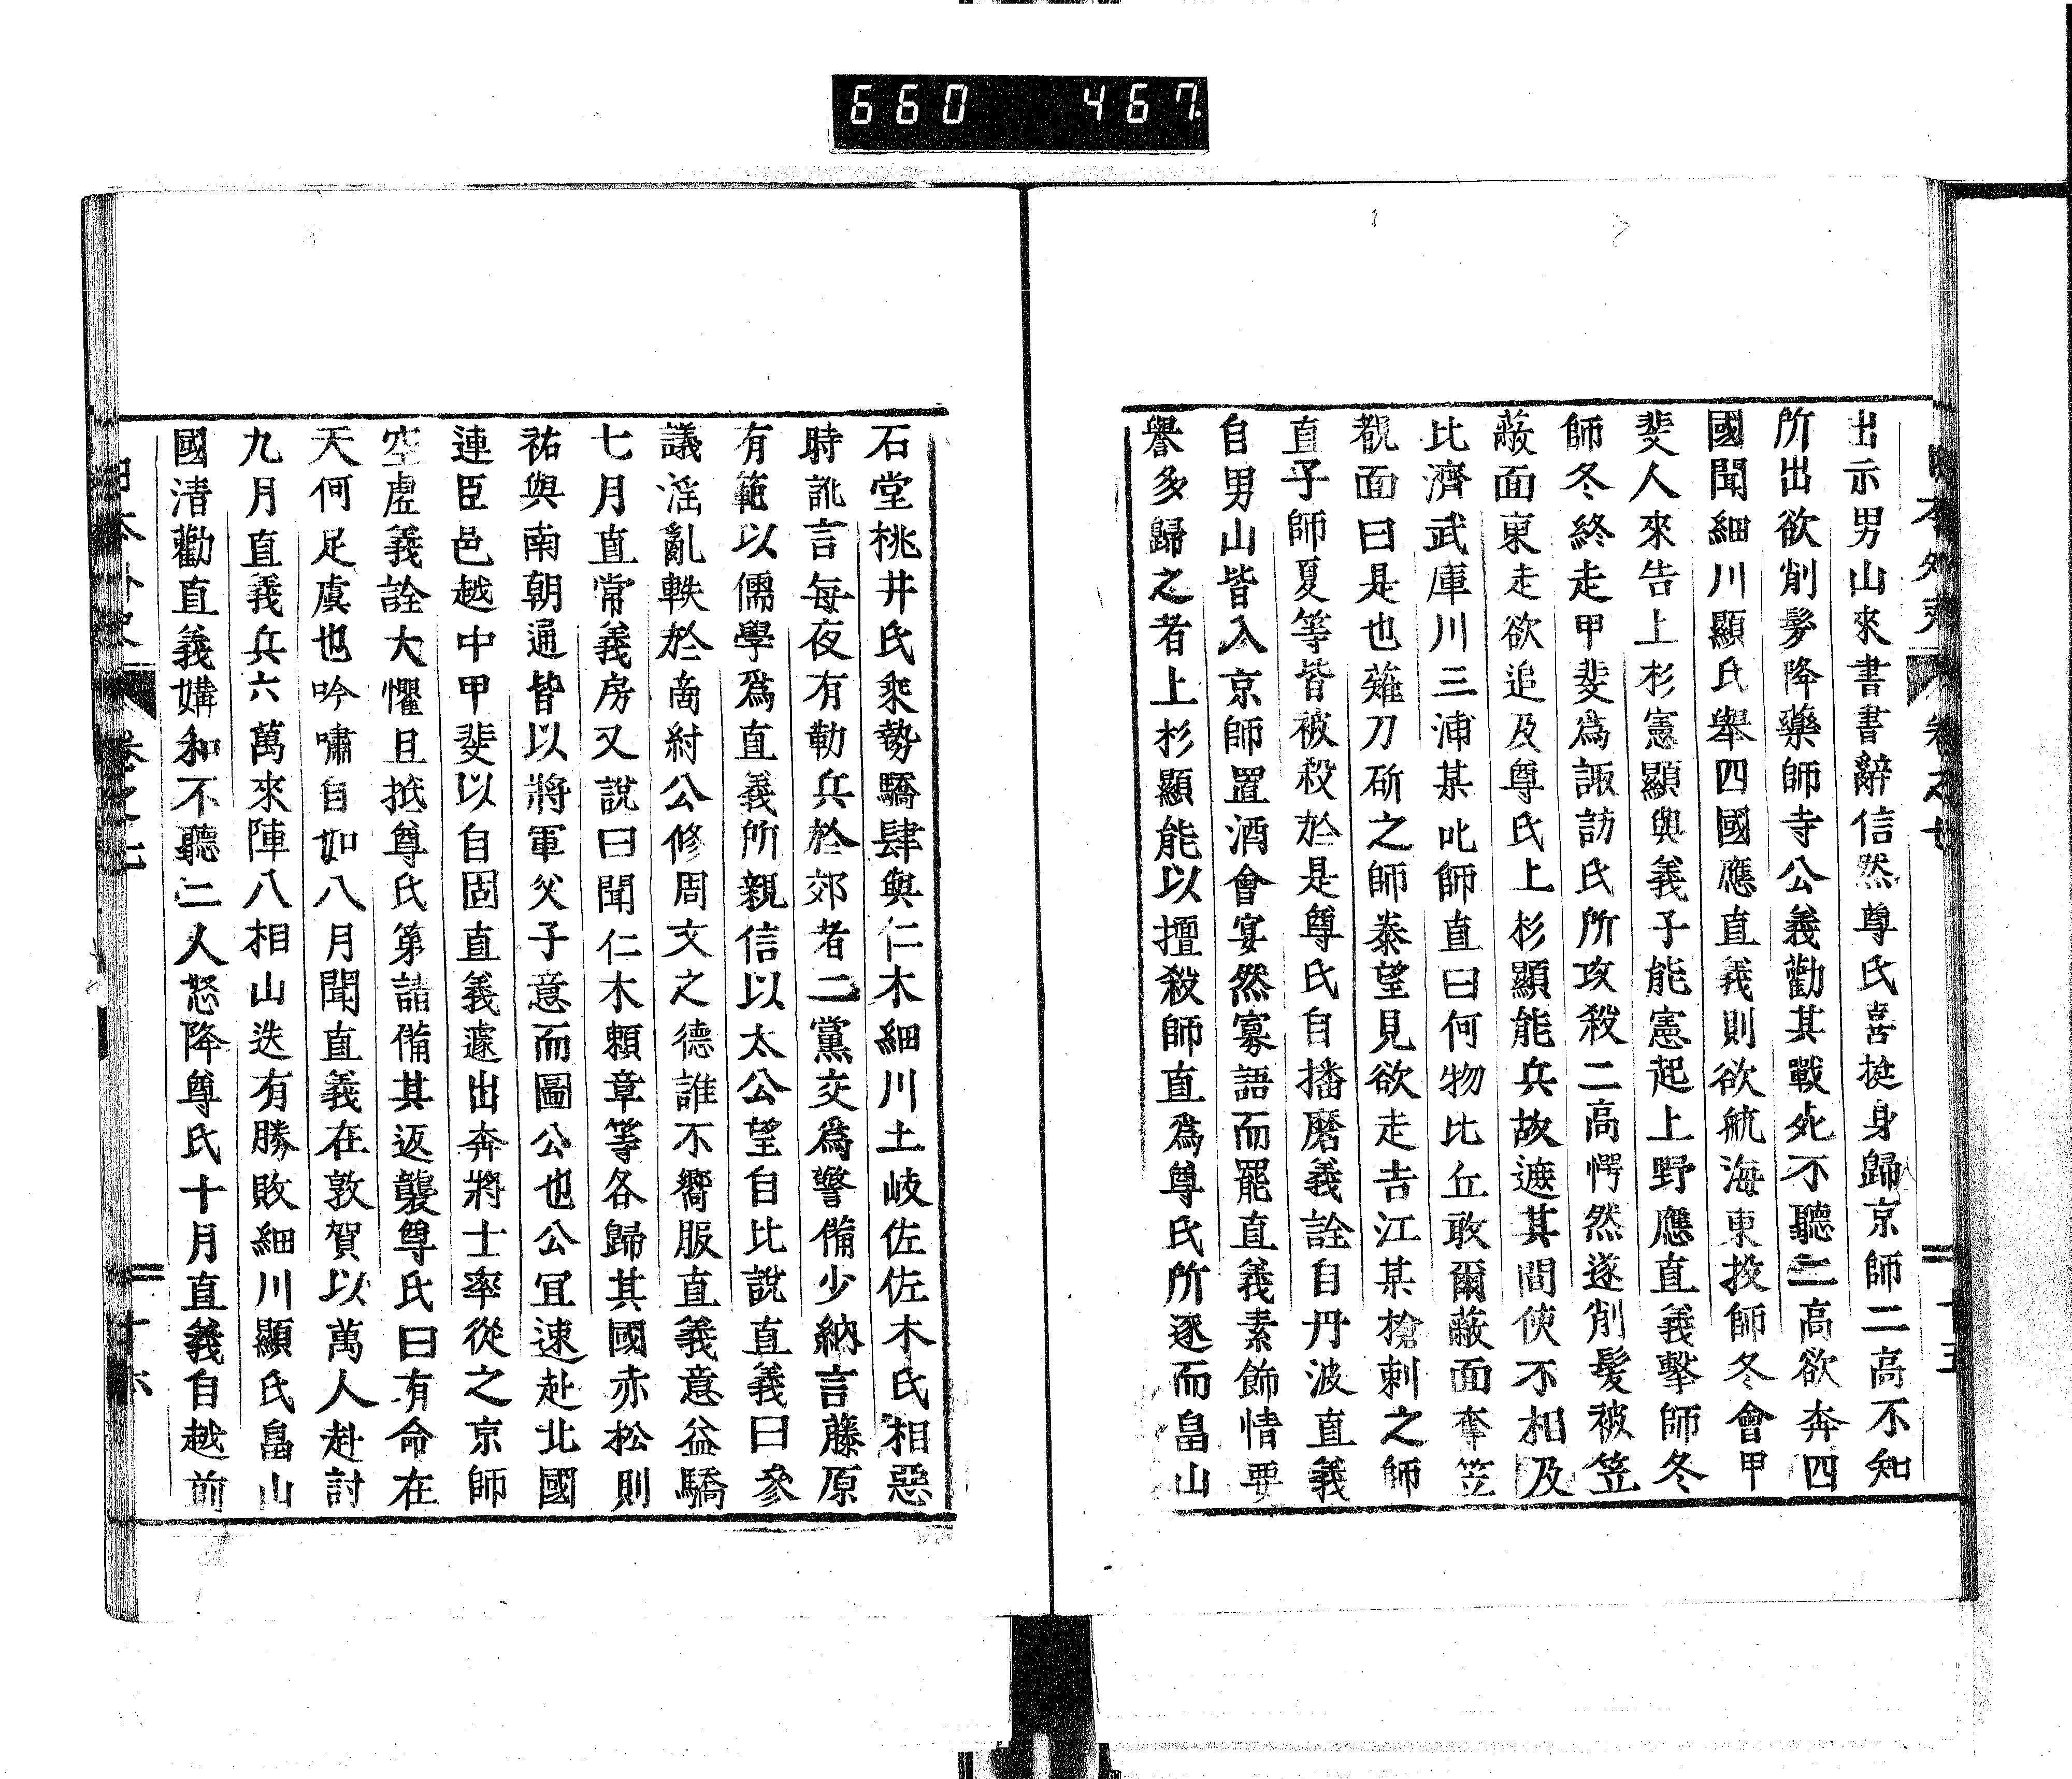 660 467.
日本外史 卷之七 十五
出示男山來書書辭信然尊氏喜挺身歸京師二高不知
所出欲削髮降藥師寺公義勸其戰死不聽二高欲奔四
國聞細川顯氏舉四國應直義則欲航海東投師冬會甲
斐人來告上杉憲顯與義子能憲起上野應直義擊師冬
師冬終走甲斐爲諏訪氏所攻殺二高愕然遂削髮被笠
蔽面東走欲追及尊氏上杉顯能兵故遮其間使不相及
比濟武庫川三浦某叱師直曰何物比丘敢爾蔽面奪笠
覩面曰是也薙刀斫之師泰望見欲走吉江某槍刺之師
直子師夏等皆被殺於是尊氏自播磨義詮自丹波直義
自男山皆入京師置酒會宴然寡語而罷直義素飾情要
譽多歸之者上杉顯能以擅殺師直爲尊氏所逐而畠山
石堂桃井氏乘勢驕肆與仁木細川土岐佐佐木氏相惡
時訛言每夜有勒兵於郊者二黨交爲警備少納言藤原
有範以儒學爲直義所親信以太公望自比說直義曰參
議淫亂軼於商紂公修周文之德誰不嚮服直義意益驕
七月直常義房又說曰聞仁木賴章等各歸其國赤松則
祐與南朝通皆以將軍父子意而圖公也公宜速赴北國
連臣邑越中甲斐以自固直義遽出奔將士率從之京師
空虛義詮大懼且抵尊氏第請備其返襲尊氏曰有命在
天何足虞也吟嘯自如八月聞直義在敦賀以萬人赴討
九月直義兵六萬來陣八相山迭有勝敗細川顯氏畠山
國清勸直義媾和不聽二人怒降尊氏十月直義自越前
日本外史 卷之七 十六